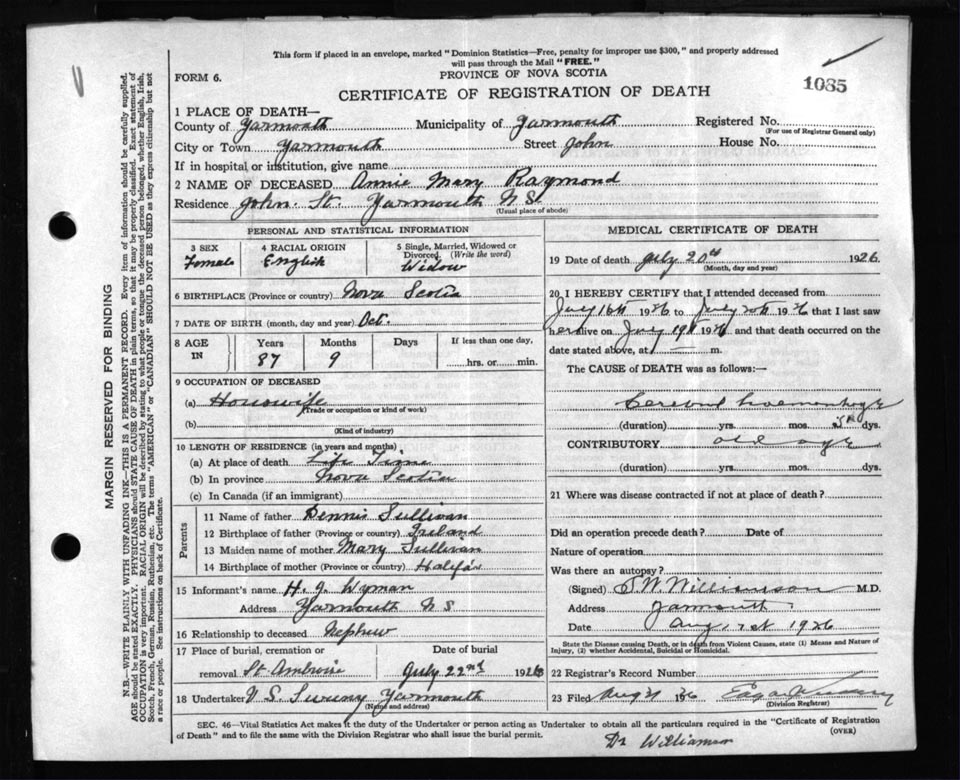 This form if placed in an envelope, marked "Dominion Statistics—Free, penalty for improper use $300," and properly addressed
will pass through the Mail "FREE."
PROVINCE OF NOVA SCOTIA
FORM 6.
CERTIFICATE OF REGISTRATION OF DEATH
1085
1 PLACE OF DEATH—
County of Yarmouth Municipality of Yarmouth Registered No.
(For use of Registrar General only)
City or Town Yarmouth Street John House No.
If in hospital or institution, give name
2 NAME OF DECEASED Annie Mary Raymond
Residence John St. Yarmouth N.S.
(Usual place of abode)
PERSONAL AND STATISTICAL INFORMATION
3 SEX Female
4 RACIAL ORIGIN English
5 Single, Married, Widowed or
Divorced. (Write the word)
Widow
6 BIRTHPLACE (Province or country) Nova Scotia
7 DATE OF BIRTH (month, day and year) Oct.
8 AGE IN Years Months Days If less than one day,
87 9 hrs. or min.
9 OCCUPATION OF DECEASED
(a) Housewife
(Trade or occupation or kind of work)
(b)
(Kind of industry)
10 LENGTH OF RESIDENCE (in years and months)
(a) At place of death Life Time
(b) In province Nova Scotia
(c) In Canada (if an immigrant)
Parents
11 Name of father Dennis Sullivan
12 Birthplace of father (Province or country) Ireland
13 Maiden name of mother Mary Sullivan
14 Birthplace of mother (Province or country) Halifax
15 Informant's name H. J. Wyman
Address Yarmouth N S
16 Relationship to deceased Nephew
17 Place of burial, cremation or Date of burial
removal St Ambrose July 22nd 1926
18 Undertaker V. S. Sweeny Yarmouth
(Name and address)
MEDICAL CERTIFICATE OF DEATH
19 Date of death July 20th 1926
(Month, day and year)
20 I HEREBY CERTIFY that I attended deceased from
July 16th 1926 to July 20th 1926 that I last saw
her alive on July 19th 1926 and that death occurred on
date stated above, at — m.
The CAUSE of DEATH was as follows:—
Cerebral haemorrhage
(duration) yrs. mos. dys.
CONTRIBUTORY old age
(duration) yrs. mos. dys.
21 Where was disease contracted if not at place of death?
Did an operation precede death? Date of
Nature of operation
Was there an autopsy?
(Signed) S.W. Williamson M.D.
Address Yarmouth
Date Aug 1st 1926
State the Disease causing Death, or in death from Violent Causes, state (1) Means and Nature of
Injury, (2) whether Accidental, Suicidal or Homicidal.
22 Registrar's Record Number
23 Filed Aug 31 1926
(Division Registrar)
SEC. 46—Vital Statistics Act makes it the duty of the Undertaker or person acting as Undertaker to obtain all the particulars required in the "Certificate of Registration
of Death" and to file the same with the Division Registrar who shall issue the burial permit.
(OVER)
Dr Williamson
MARGIN RESERVED FOR BINDING
N.B.—WRITE PLAINLY WITH UNFADING INK—THIS IS A PERMANENT RECORD. Every item of information should be carefully supplied.
AGE should be stated EXACTLY. PHYSICIANS should STATE CAUSE OF DEATH in plain terms, so that it may be properly classified. Exact statement of
OCCUPATION is very important. RACIAL ORIGIN will be described by stating to what people or tongue the deceased person belonged, whether English, Irish,
Scotch, French, German, Russian, Ruthenian, etc. The terms "AMERICAN" or "CANADIAN" SHOULD NOT BE USED as they express citizenship but not
a race or people. See instructions on back of Certificate.